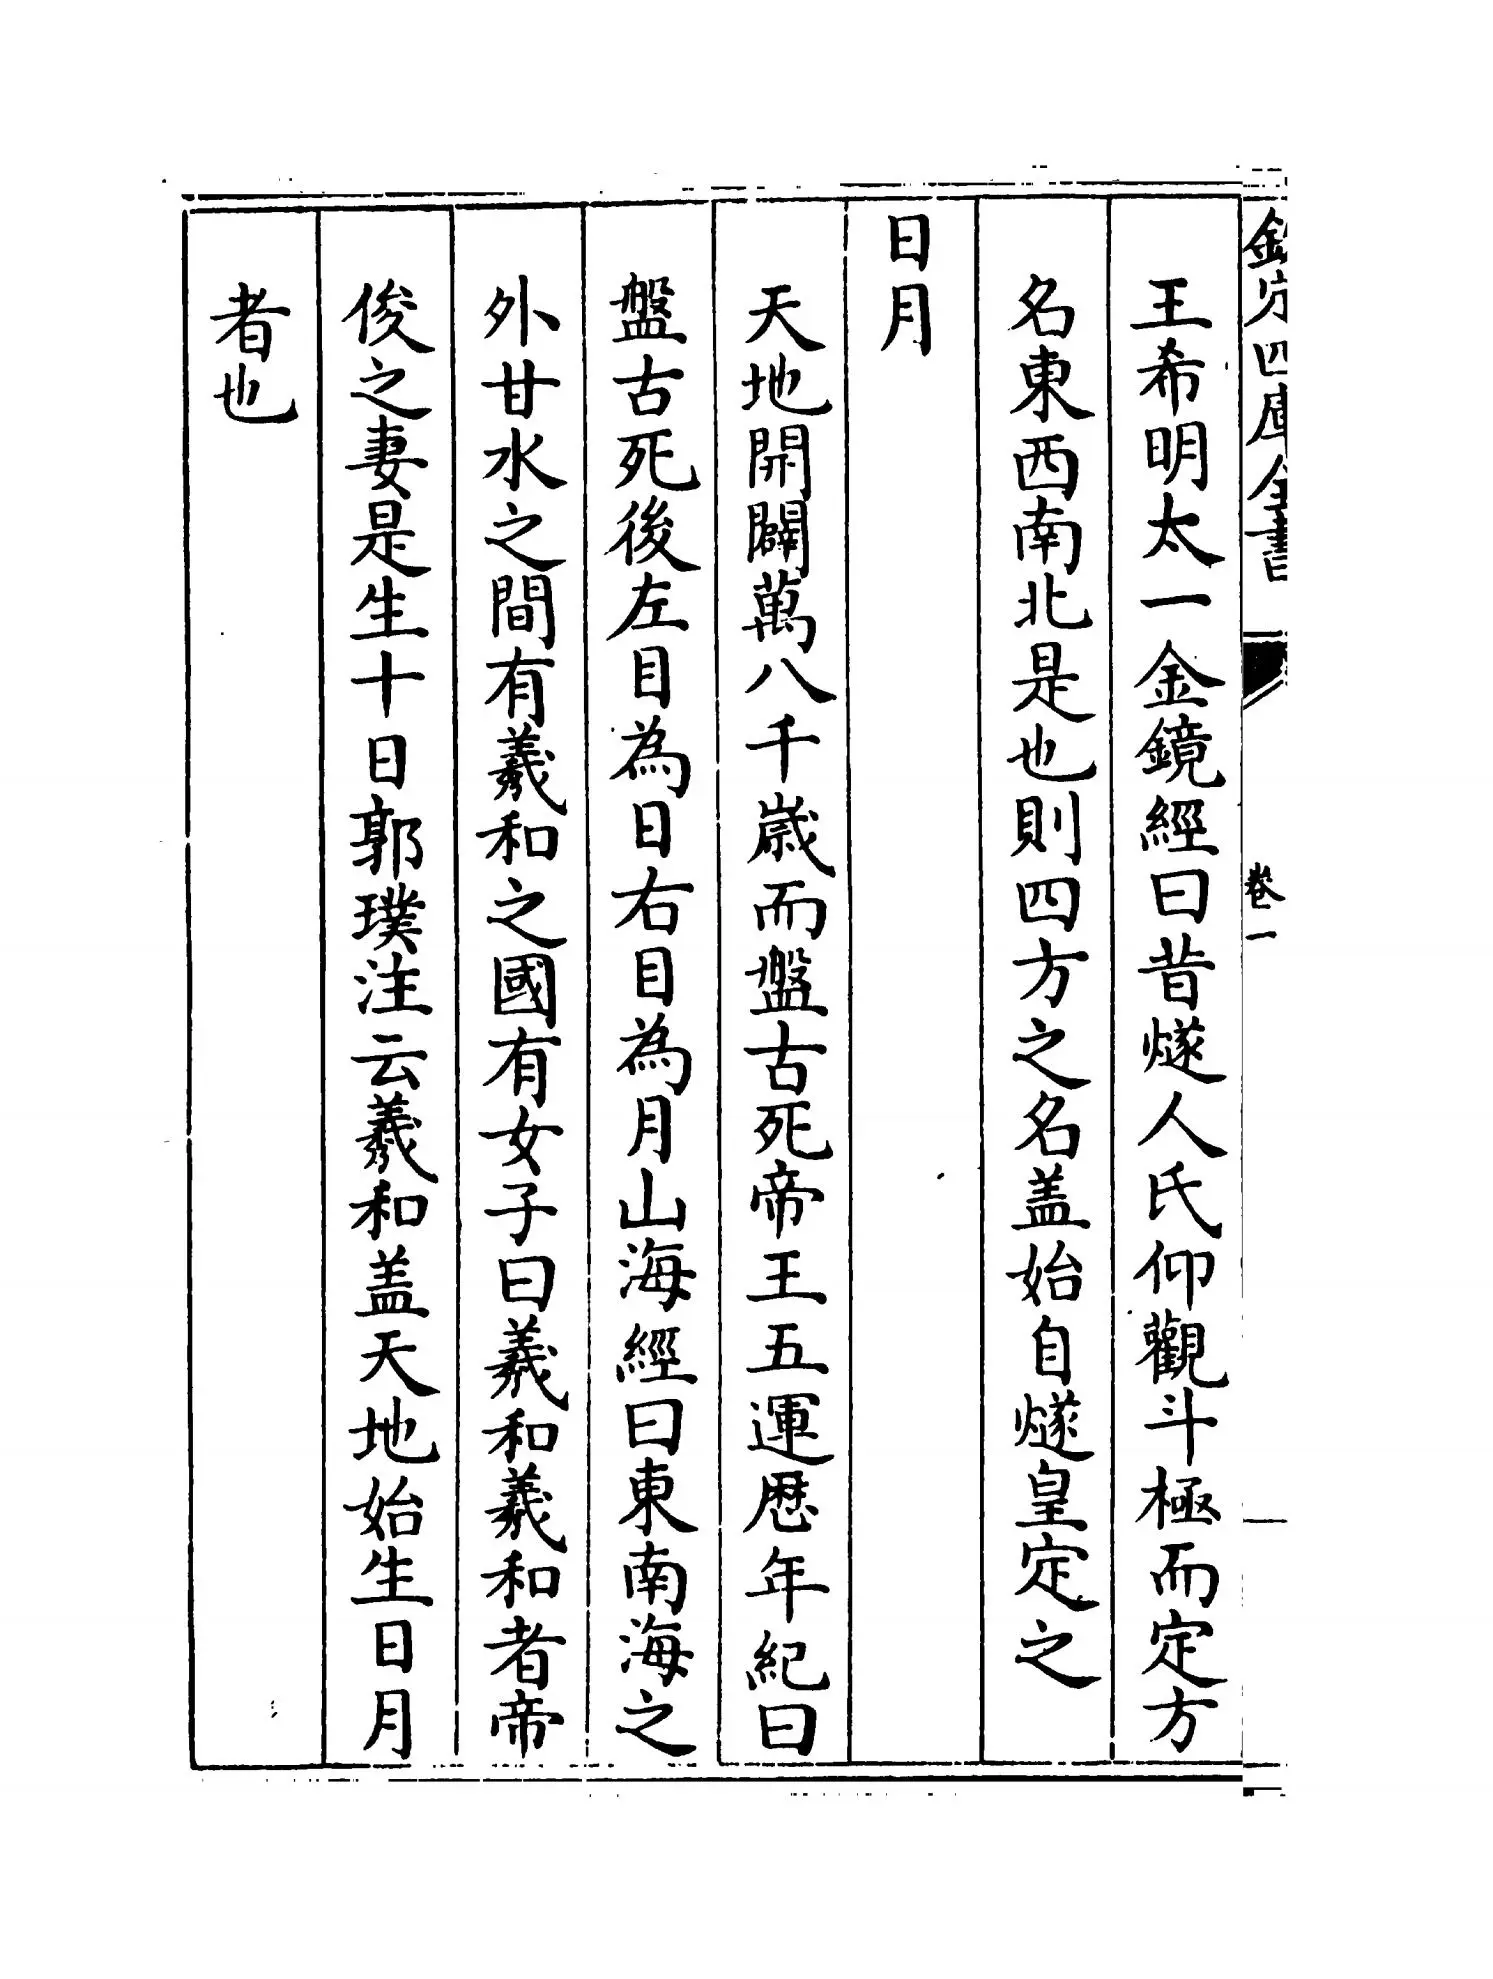 欽定四庫全書
卷一
王希明太一金鏡經曰昔燧人氏仰觀斗極而定方
名東西南北是也則四方之名盖始自燧皇定之
日月
天地開闢萬八千歲而盤古死帝王五運歴年紀曰
盤古死後左目為日右目為月山海經曰東南海之
外甘水之間有羲和之國有女子曰羲和羲和者帝
俊之妻是生十日郭璞注云羲和盖天地始生日月
者也